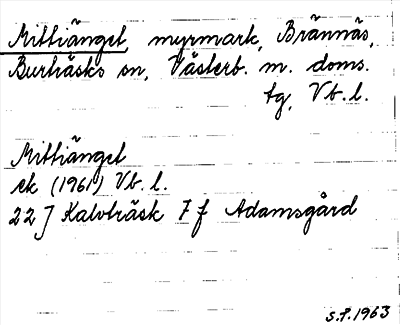 Mittiänget, myrmark, Brännäs,
Burträsks sn, Västerb. m. doms.
tg, Vb. l.
Mittiänget
ek (1961) Vb. l.
22J Kalvträsk 7f Adamsgård
S.F. 1963